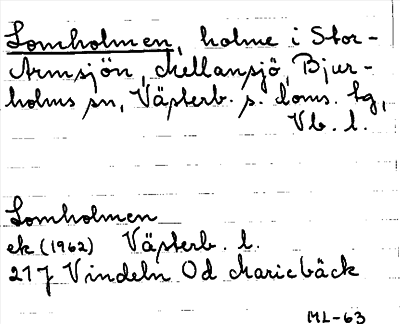 Lomholmen, holme i Stor-
Armsjön, Mellansjö, Bjur-
holms sn, Västerb. s. doms. tg,
Vb. l.
Lomholmen
ek (1962) Västerb. l.
217 Vindeln Od Mariebäck
ML-63